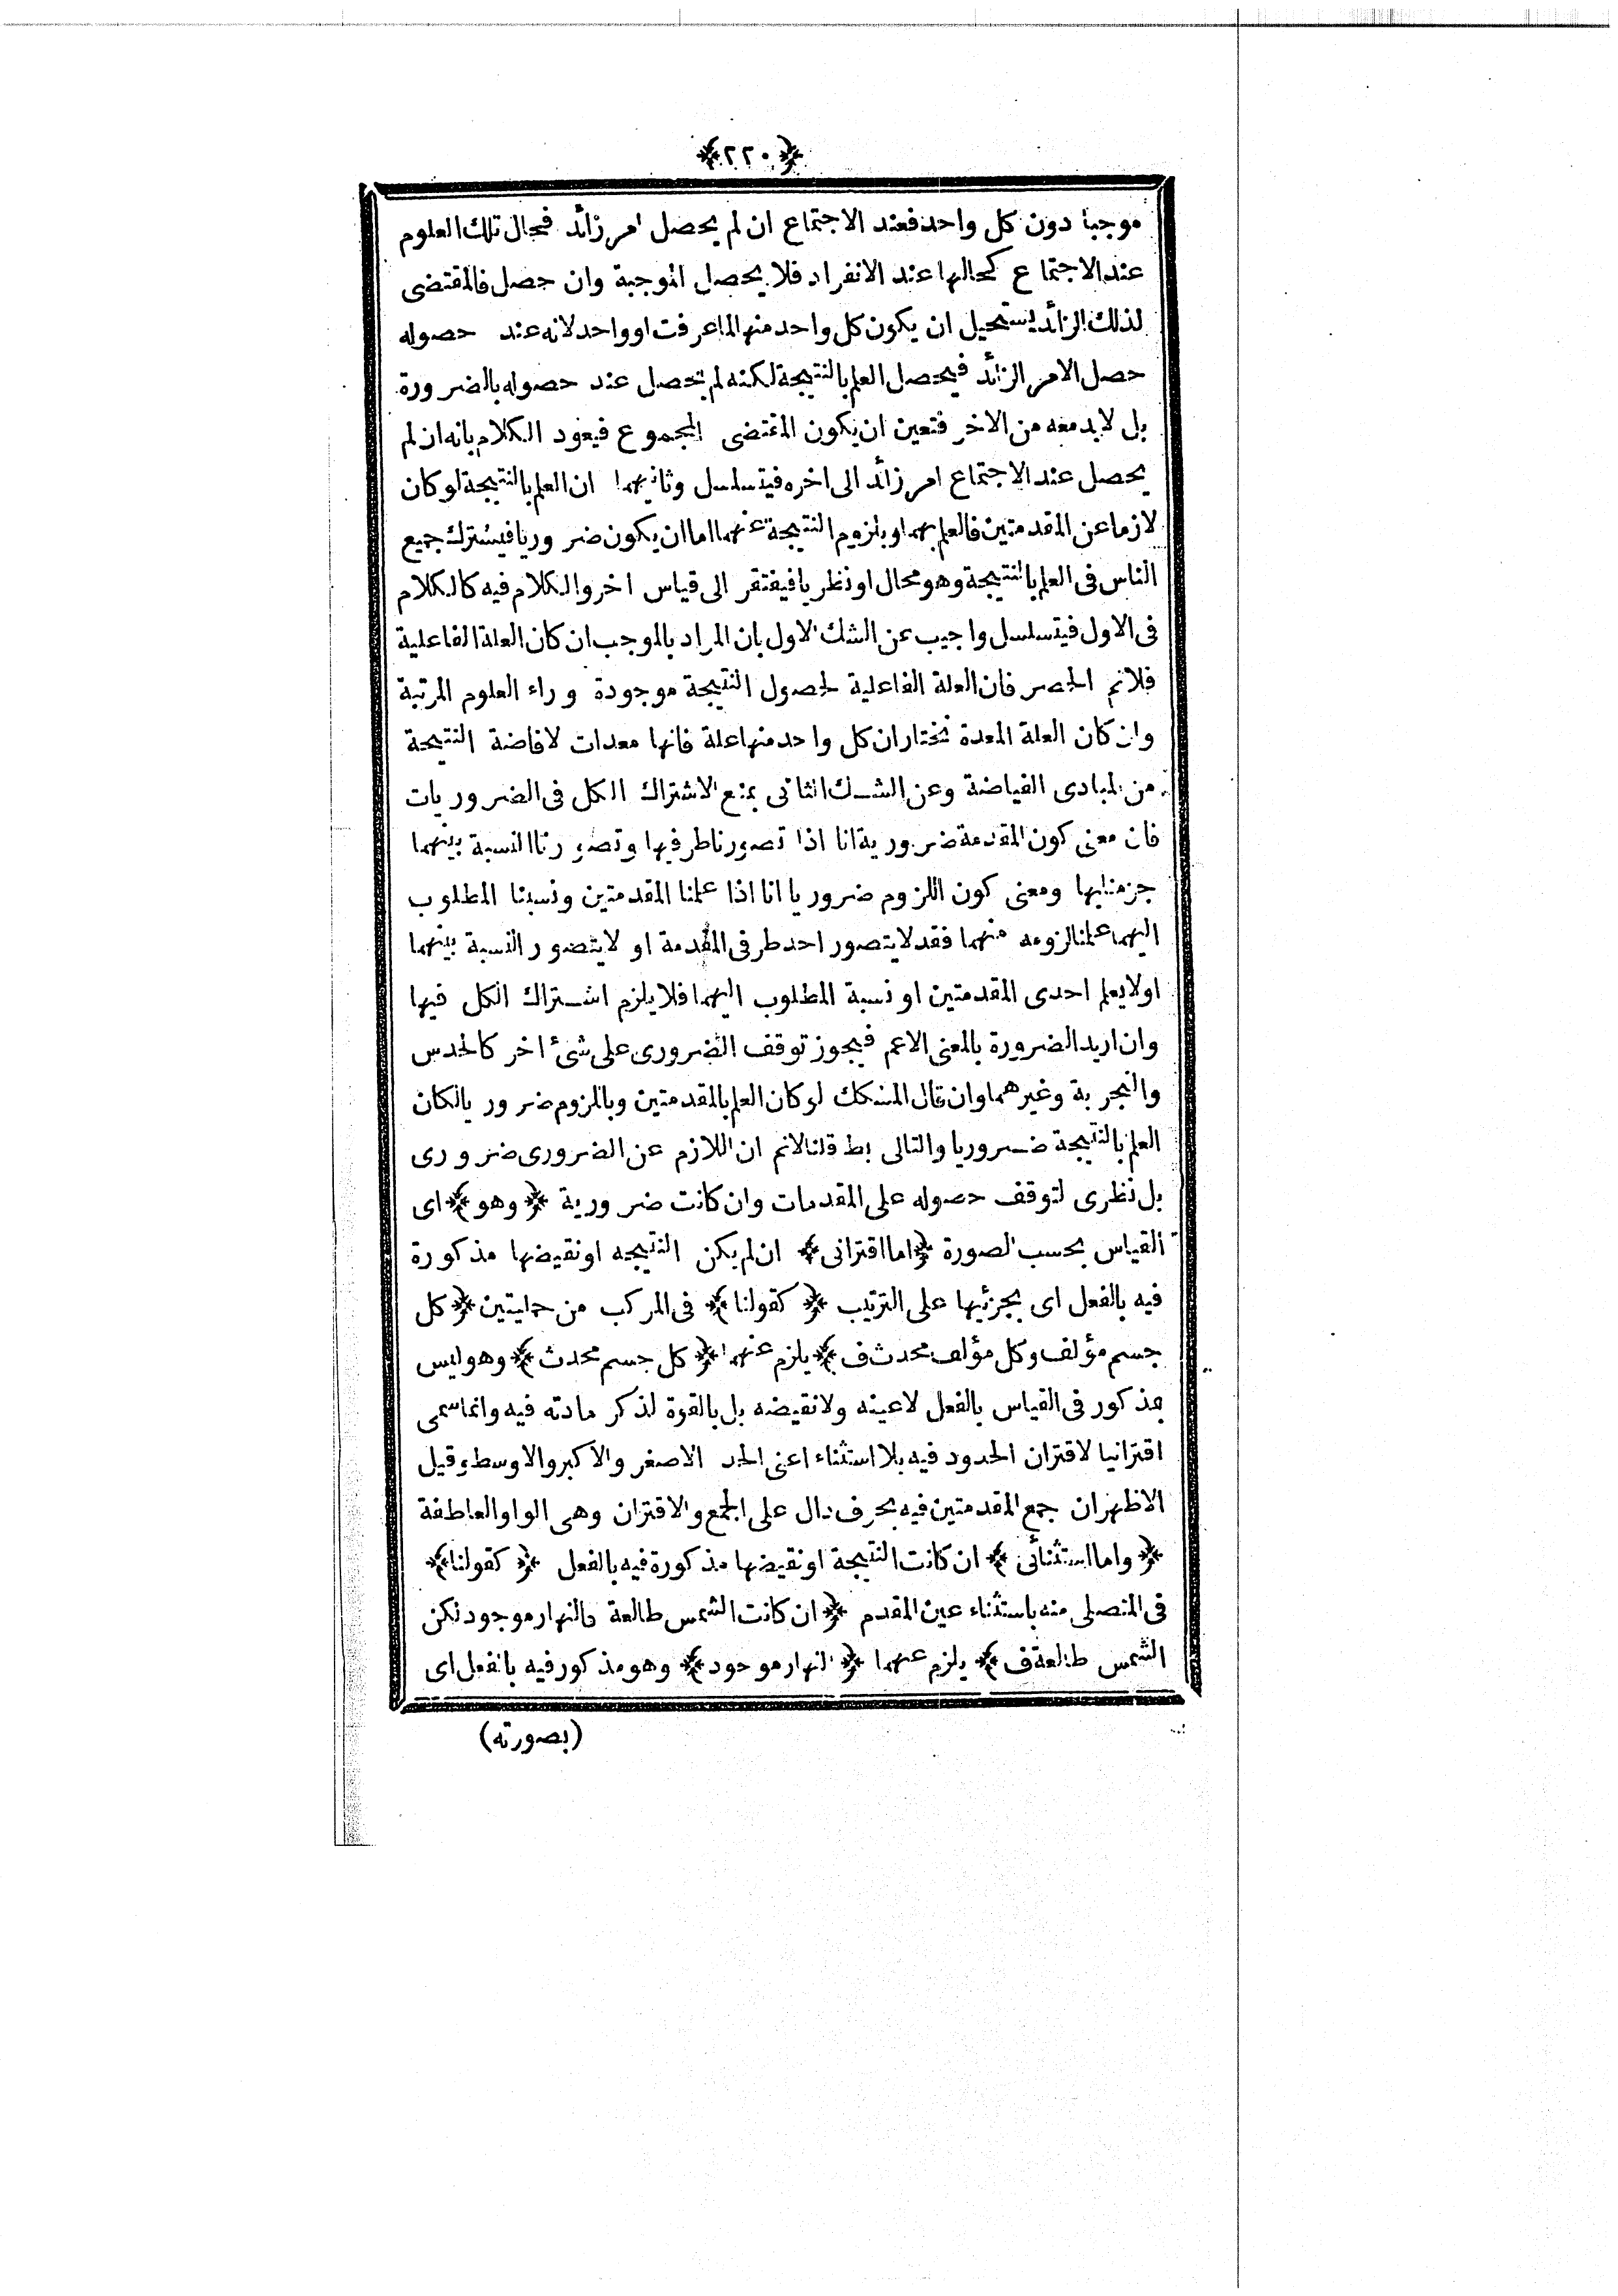 ﴿٢٢٠﴾
موجبا دون كل واحد فعند الاجتماع ان لم يحصل امر زائد فحال تلك العلوم
عند الاجتماع كحالها عند الانفراد فلا يحصل الموجبة وان حصل فالمقتضى
لذلك الزائد يستحيل ان يكون كل واحد منها لما عرفت او واحد لانه عند حصوله
حصل الامر الزائد فيحصل العلم بالنتيجة لكنه لم يحصل عند حصوله بالضرورة
بل لابد معه من الاخر فتعين ان يكون المقتضى المجموع فيعود الكلام بانه ان لم
يحصل عند الاجتماع امر زائد الى اخره فيتسلسل وثانيهما ان العلم بالنتيجة لو كان
لازما عن المقدمتين فالعلم بهما او بلزوم النتيجة عنهما اما ان يكون ضروريا فيشترك جميع
الناس فى العلم بالنتيجة وهو محال او نظريا فيفتقر الى قياس اخر والكلام فيه كالكلام
فى الاول فيتسلسل واجيب عن الشك الاول بان المراد بالموجب ان كان العلة الفاعلية
فلانم الحصر فان العلة الفاعلية لحصول النتيجة موجودة وراء العلوم المرتبة
وان كان العلة المعدة نختار ان كل واحد منها علة فانها معدات لافاضة النتيجة
من المبادى الفياضة وعن الشك الثانى بمنع الاشتراك الكل فى الضروريات
فان معنى كون المقدمة ضرورية انا اذا تصورنا طرفيها وتصورنا النسبة بينهما
جزمنا بها ومعنى كون اللزوم ضروريا انا اذا علمنا المقدمتين ونسبنا المطلوب
اليهما علمنا لزومه منهما فقد لا يتصور احد طرفى المقدمة او لا يتصور النسبة بينهما
او لا يعلم احدى المقدمتين او نسبة المطلوب اليهما فلا يلزم اشتراك الكل فيها
وان اريد الضرورة بالمعنى الاعم فيجوز توقف الضرورى على شئ اخر كالحدس
والتجربة وغيرهما وان قال المشكك لو كان العلم بالمقدمتين وباللزوم ضروريا لكان
العلم بالنتيجة ضروريا والتالى بط قلنا لانم ان اللازم عن الضرورى ضرورى
بل نظرى لتوقف حصوله على المقدمات وان كانت ضرورية ﴿وهو﴾ اى
القياس بحسب الصورة ﴿اما اقترانى﴾ ان لم يكن النتيجه او نقيضها مذكورة
فيه بالفعل اى بجزئيها على الترتيب ﴿كقولنا﴾ فى المركب من حمليتين ﴿كل
جسم مؤلف وكل مؤلف محدث ف﴾ يلزم عنهما ﴿كل جسم محدث﴾ وهو ليس
بمذكور فى القياس بالفعل لا عينه ولا نقيضه بل بالقوة لذكر مادته فيه وانما سمى
اقترانيا لاقتران الحدود فيه بلا استثناء اعنى الحد الاصغر والاكبر والاوسط وقيل
الاظهر ان جمع المقدمتين فيه بحرف دال على الجمع والاقتران وهى الواو العاطفة
﴿واما استثنائى﴾ ان كانت النتيجة او نقيضها مذكورة فيه بالفعل ﴿كقولنا﴾
فى المتصلى منه باستثناء عين المقدم ﴿ان كانت الشمس طالعة فالنهار موجود لكن
الشمس طالعة ف﴾ يلزم عنهما ﴿النهار موجود﴾ وهو مذكور فيه بالفعل اى
(بصورته)